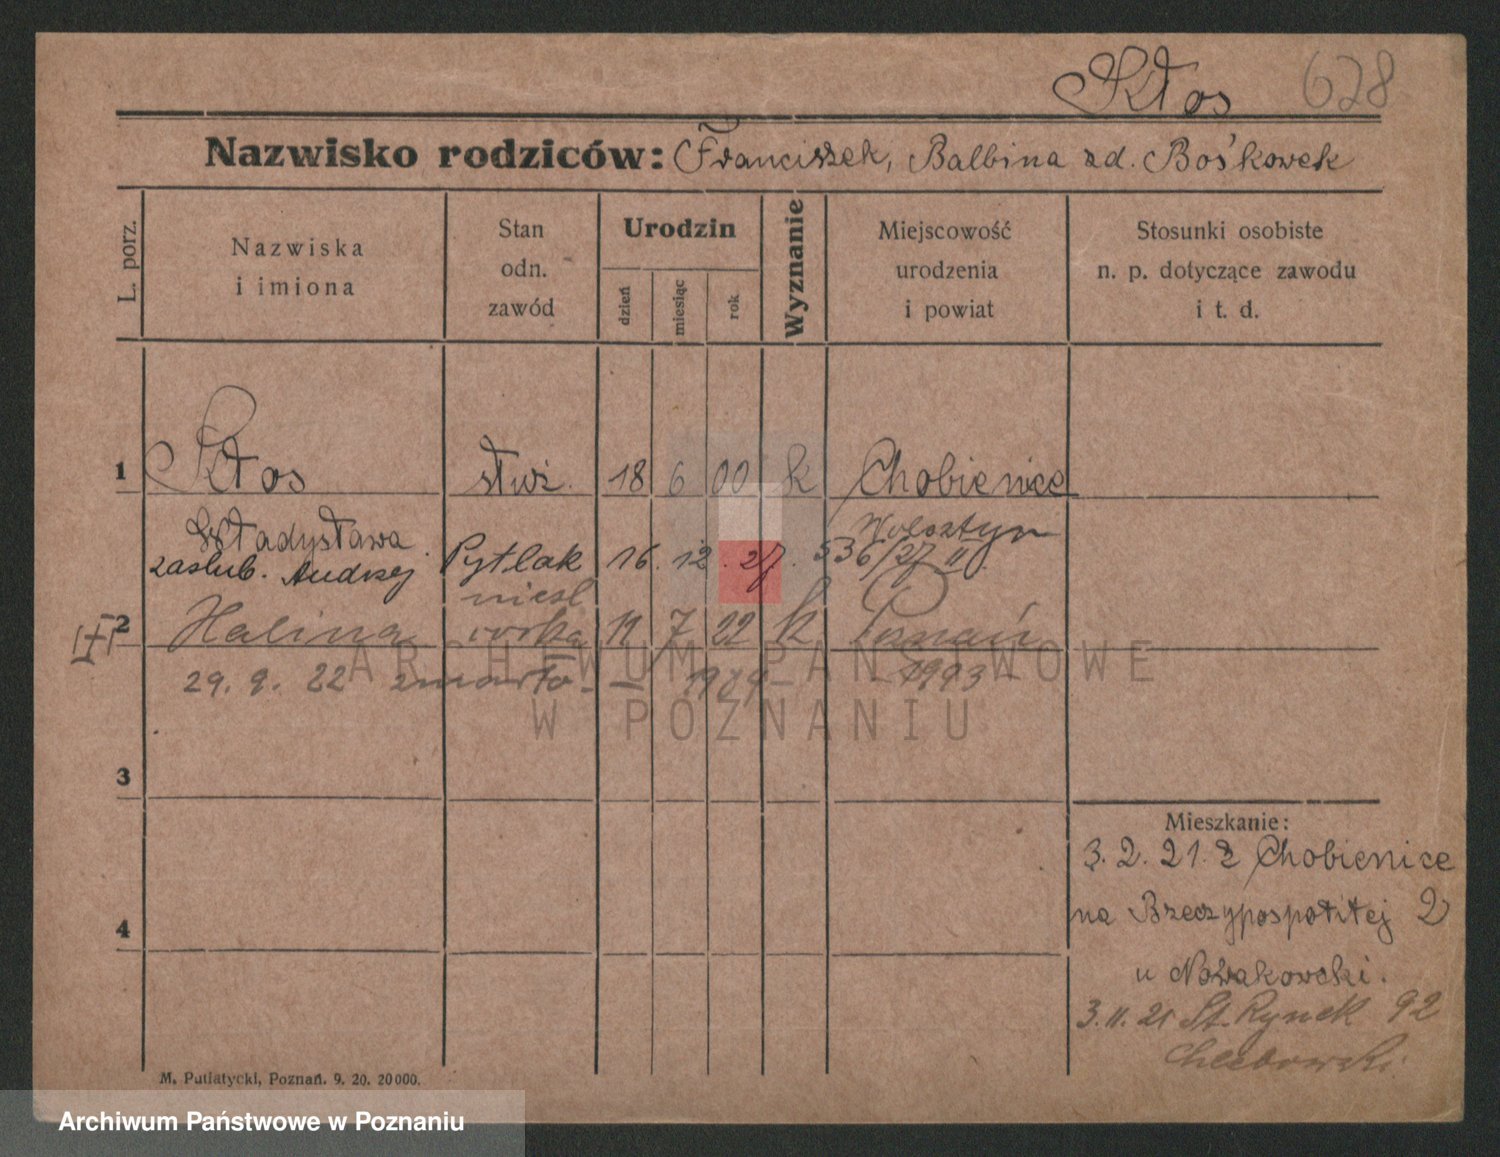 Kłos 628
Nazwisko rodziców: Franciszek, Balbina zd. Bośkowek
L. porz.
Nazwiska
i imiona
Stan
odn.
zawód
Urodzin
dzień
miesiąc
rok
Wyznanie
Miejscowość
urodzenia
i powiat
Stosunki osobiste
n. p. dotyczące zawodu
i t. d.
1 Kłos służ. 18 6 00 k Chobienice
Władysława Wolsztyn
zaślub. Andrzej Pytlak 16. 12. 27. 536/27 II
nieśl
2 Halina córka 11 7 22 k Poznań
29. 9. 22 zmarła - 1993
ARCHIWUM PAŃSTWOWE
W POZNANIU
3
Mieszkanie:
3. 2. 21. z Chobienice
4
na Rzeczypospolitej 2
u Nowakowski.
3. 11. 21 St. Rynek 92
Chlebowski.
M. Putiatycki, Poznań. 9. 20. 20000.
Archiwum Państwowe w Poznaniu